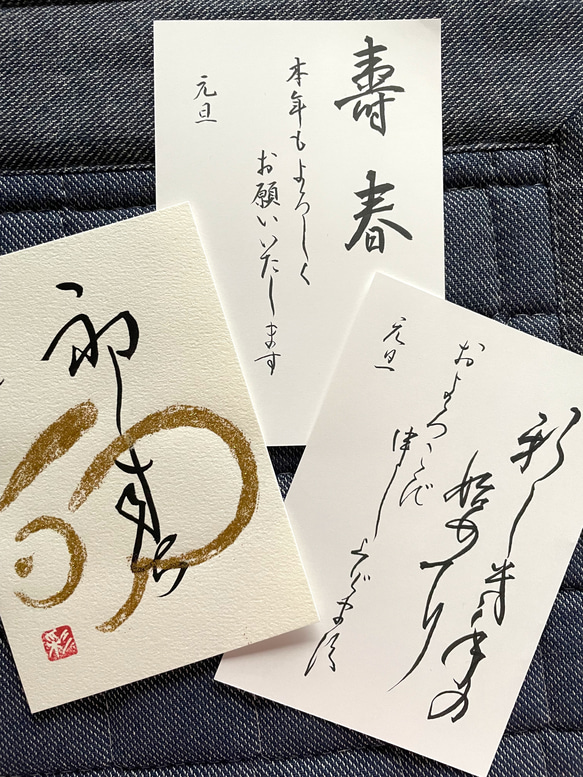 壽春
本年もよろしく
お願いいたします
元旦
新しき年の
始めの
およろこび
申し上げます
元旦
彩